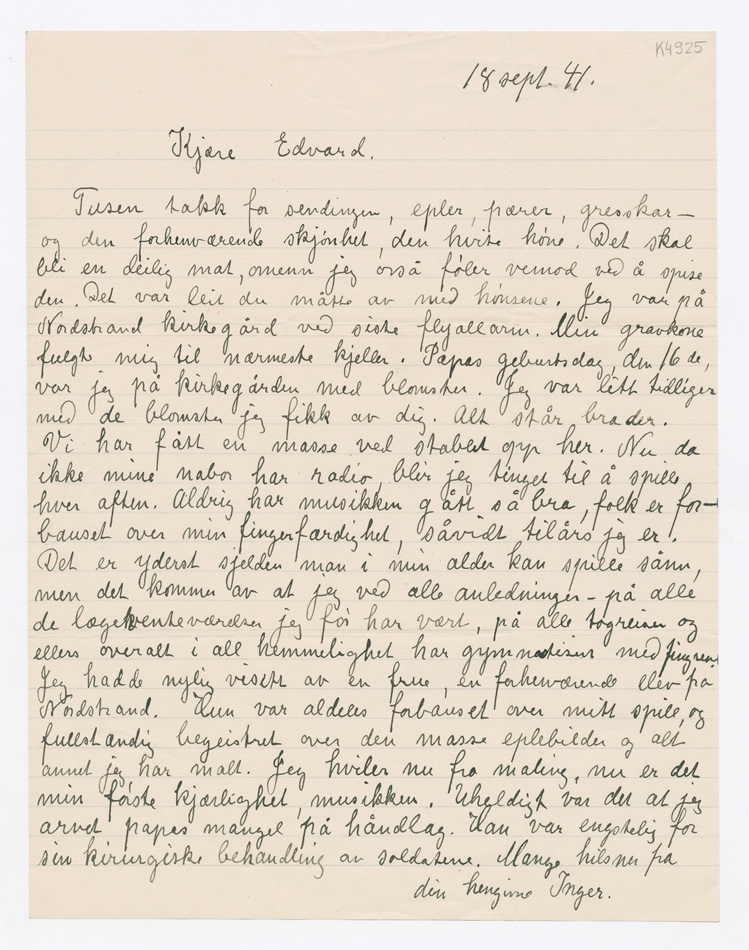 K4925
18 sept. 41.
Kjære Edvard.
Tusen takk for sendingen, epler, pærer, gresskar-
og den forhenværende skjönhet, den hvite höne. Det skal
bli en deilig mat, omenn jeg osså föler vemod ved å spise
den. Det var leit du måtte av med hönsene. Jeg var på
Nordstrand kirkegård ved siste flyallarm. Min gravkone
fulgte mig til nærmeste kjeller. Papas geburtsdag, den 16 de,
var jeg på kirkegården med blomster. Jeg var litt tidliger
med de blomster jeg fikk av dig. Alt står bra der.
Vi har fått en masse ved stablet opp her. Nu da
ikke mine nabor har radio, blir jeg tinget til å spille
hver aften. Aldrig har musikken gått så bra, folk er for-
bauset over min fingerfærdighet, såvidt tilårs jeg er.
Det er yderst sjelden man i min alder kan spille sånn,
men det kommer av at jeg ved alle anledninger - på alle
de lægeventeværelser jeg för har vært, på alle togreiser og
ellers overalt i all hemmelighet har gymnastisert med fingrene.
Jeg hadde nylig visitt av en frue, en forhenværende elev på
Nordstrand. Hun var aldeles forbauset over mitt spill, og
fullstændig begeistret over den masse eplebilder og alt
annet jeg har malt. Jeg hviler nu fra maling, nu er det
min förste kjærlighet, musikken. Uheldigt var det at jeg
arvet papas mangel på håndlag. Han var engstelig for
sin kirurgiske behandling av soldatene. Mange hilsner fra
din hengivne Inger.